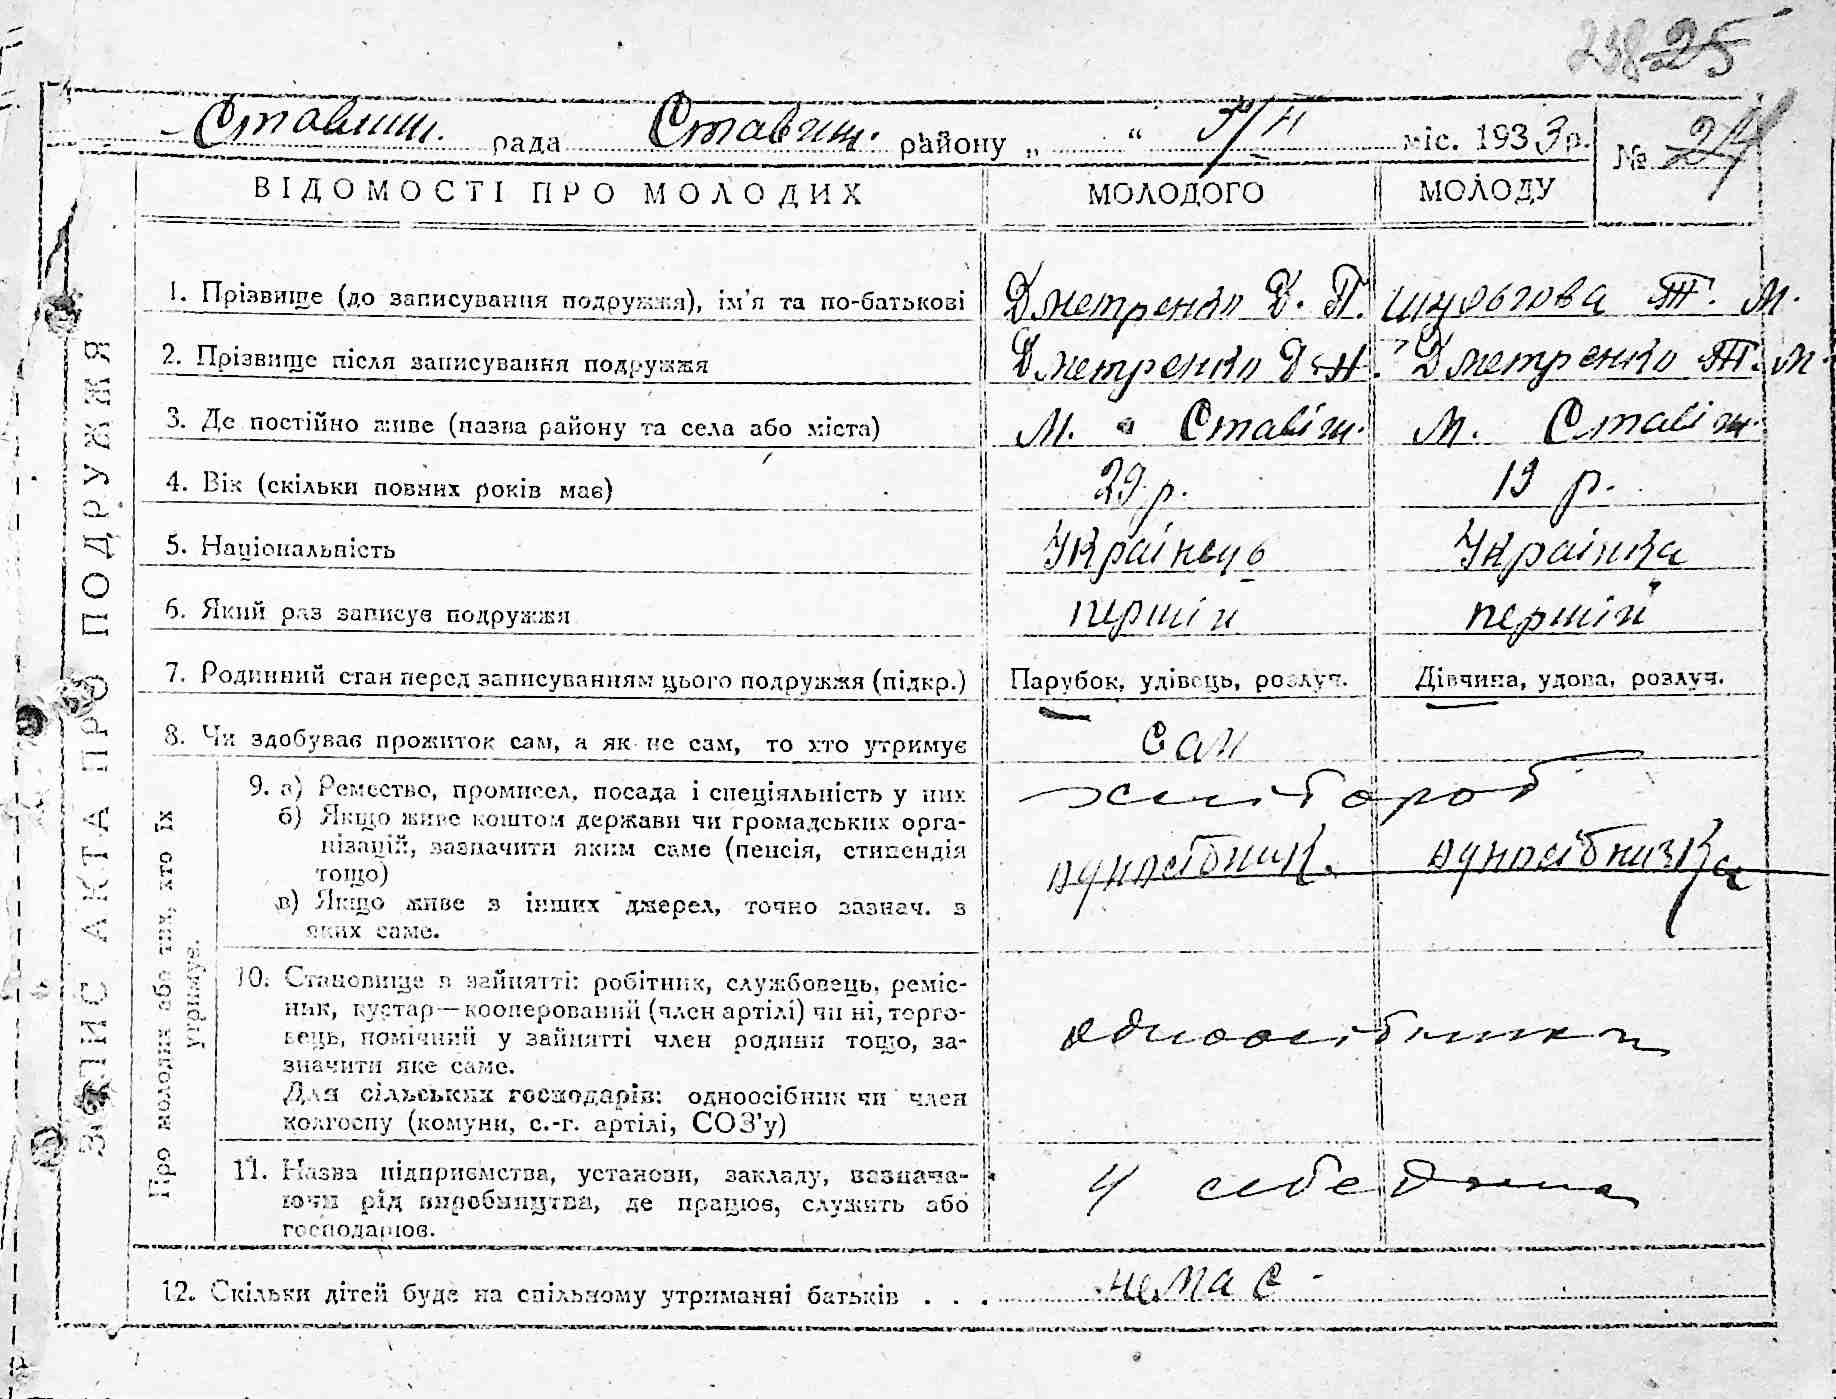 25
Ставищ. рада Ставищ. району „ “ 3/II міс. 1933 р. № 24
ВІДОМОСТІ ПРО МОЛОДИХ МОЛОДОГО МОЛОДУ
ЗАПИС АКТА ПРО ПОДРУЖЖЯ
1. Прізвище (до записування подружжя), ім’я та по-батькові Дметренко Д. П. Шульгова Т. М.
2. Прізвище після записування подружжя Дметренко Д. П. Дметренко Т. М.
3. Де постійно живе (назва району та села або міста) М. Ставіщ. М. Ставіщ.
4. Вік (скільки повних років має) 29 р. 19 р.
5. Національність Українець Українка
6. Який раз записує подружжя першій першій
7. Родинний стан перед записуванням цього подружжя (підкр.) Парубок, удівець, розлуч. Дівчина, удова, розлуч.
8. Чи здобуває прожиток сам, а як не сам, то хто утримує Сам
Про молодих або тих, хто їх утримує.
9. а) Ремество, промисел, посада і спеціяльність у них хлібороб
б) Якщо живе коштом держави чи громадських орга-
нізацій, зазначити яким саме (пенсія, стипендія одноосібник. одноосібничка
тощо)
в) Якщо живе з інших джерел, точно зазнач. з
яких саме.
10. Становище в зайнятті: робітник, службовець, реміс-
ник, кустар—кооперований (член артілі) чи ні, торго-
вець, помічний у зайнятті член родини тощо, за- одноосібники
значити яке саме.
Для сільських господарів: одноосібник чи член
колгоспу (комуни, с.-г. артілі, СОЗ’у)
11. Назва підприємства, установи, закладу, зазнача- У себе дома
ючи рід виробництва, де працює, служить або
господарює.
12. Скільки дітей буде на спільному утриманні батьків . . . немає